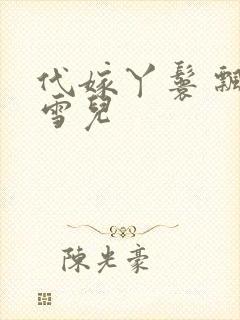 代嫁丫鬟飄
雪兒
陳光豪